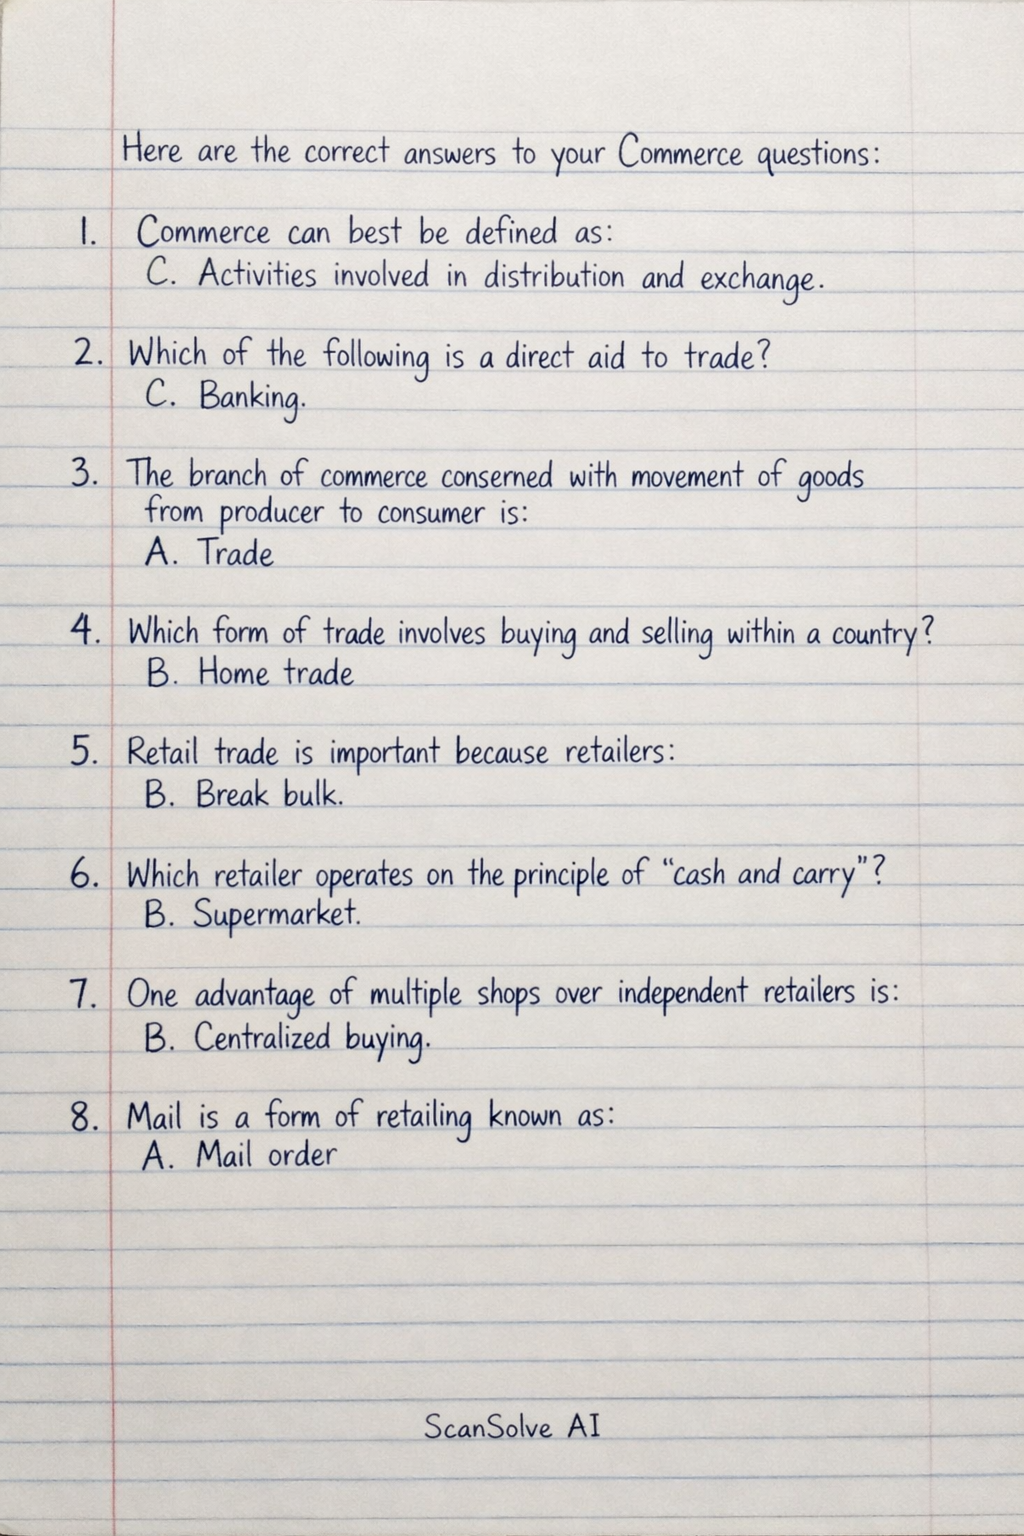 Here are the correct answers to your Commerce questions:
1. Commerce can best be defined as:
C. Activities involved in distribution and exchange.
2. Which of the following is a direct aid to trade?
C. Banking.
3. The branch of commerce conserned with movement of goods
from producer to consumer is:
A. Trade
4. Which form of trade involves buying and selling within a country?
B. Home trade
5. Retail trade is important because retailers:
B. Break bulk.
6. Which retailer operates on the principle of “cash and carry”?
B. Supermarket.
7. One advantage of multiple shops over independent retailers is:
B. Centralized buying.
8. Mail is a form of retailing known as:
A. Mail order
ScanSolve AI